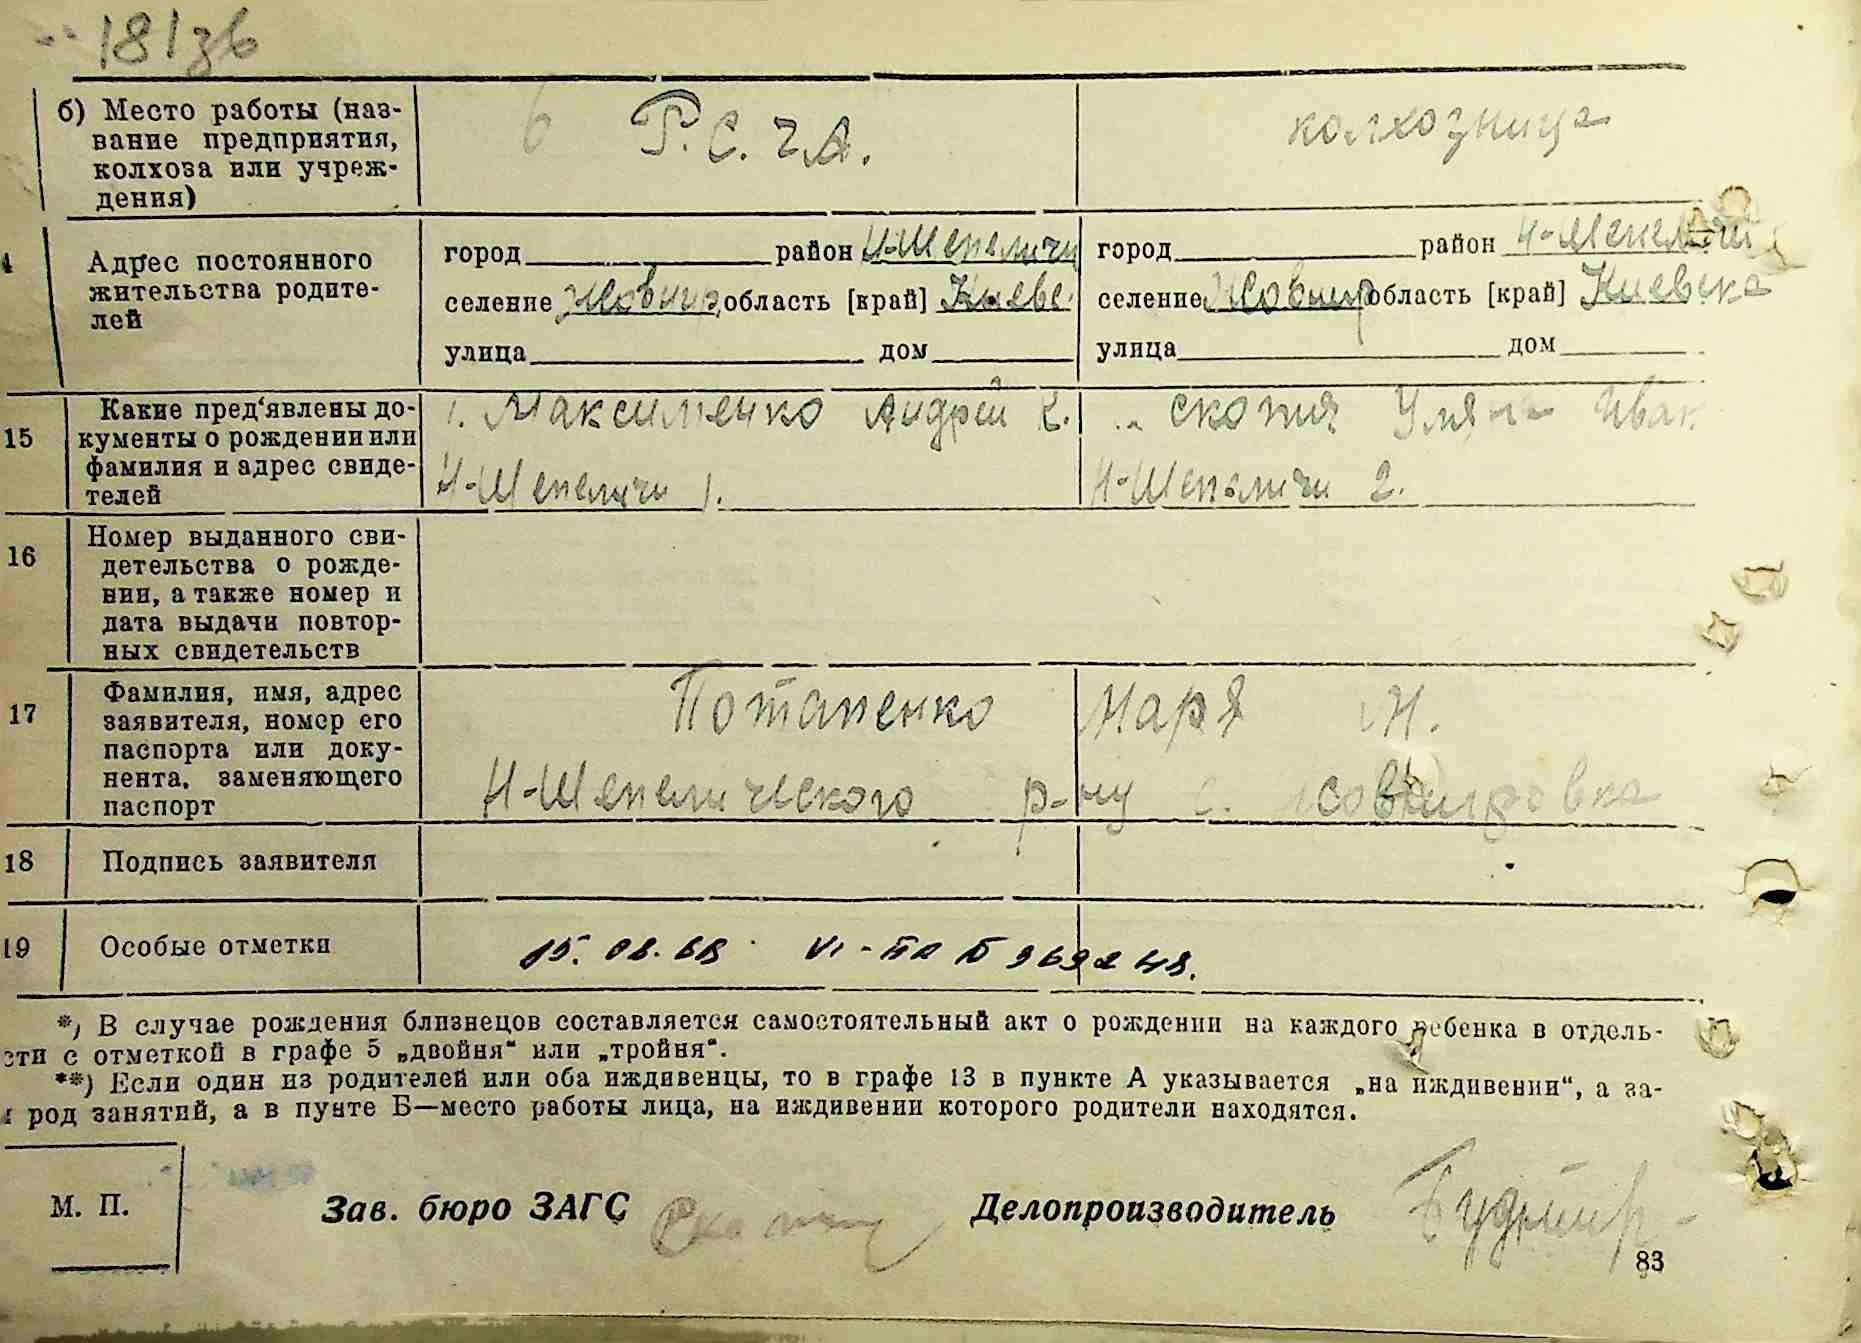 181зв
б) Место работы (наз-
вание предприятия,
колхоза или учреж-
дения)
в Р.С.ЧА.
колхозница
Адрес постоянного
жительства родите-
лей
город район Н-Шепеличи
селение область [край] Киевс
улица дом
город район Н-Шепеличи
селение область [край] Киевска
улица дом
15 Какие пред‘явлены до-
кументы о рождении или
фамилия и адрес свиде-
телей
1. Максименко Андрей К.
Н-Шепеличи 1.
Уляна Иван
Н-Шепеличи 2.
16 Номер выданного сви-
детельства о рожде-
нии, а также номер и
дата выдачи повтор-
ных свидетельств
17 Фамилия, имя, адрес
заявителя, номер его
паспорта или доку-
нента, заменяющего
паспорт
Потапенко Маря М.
Н-Шепелического р-ну с.
18 Подпись заявителя
19 Особые отметки
15. 08. 68 VI-
*) В случае рождения близнецов составляется самостоятельный акт о рождении на каждого ребенка в отдель-
сти с отметкой в графе 5 „двойня“ или „тройня“.
**) Если один из родителей или оба иждивенцы, то в графе 13 в пункте А указывается „на иждивении“, а за-
род занятий, а в пункте Б—место работы лица, на иждивении которого родители находятся.
М. П.
Зав. бюро ЗАГС Делопроизводитель
83